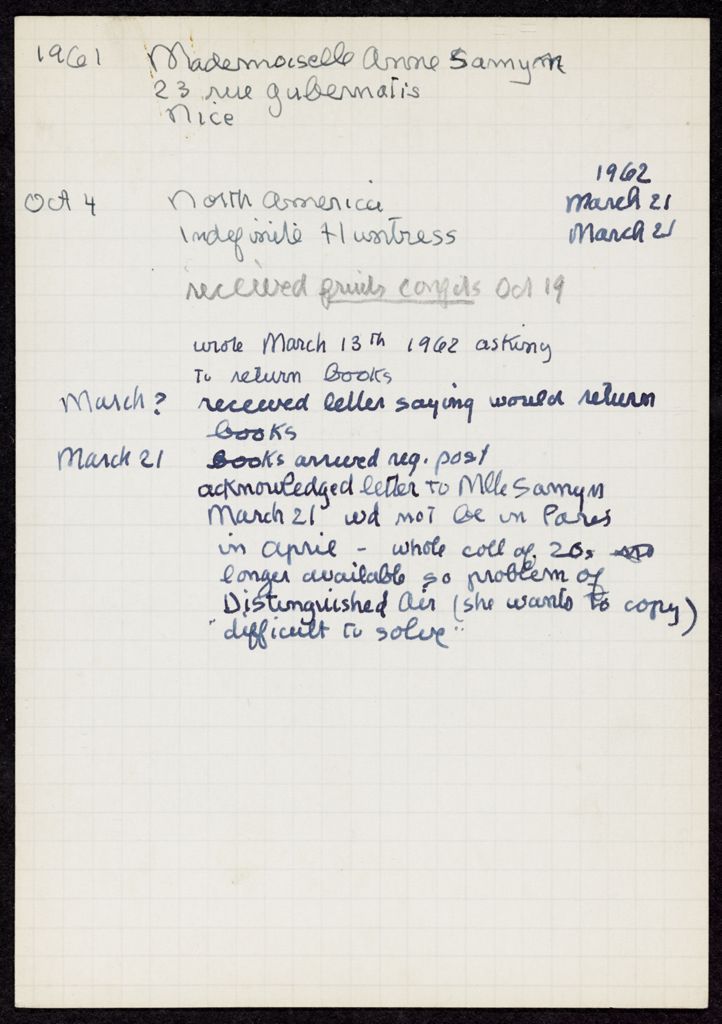 1961 Mademoiselle Anne Samyn
23 rue Gubernatis
Nice
1962
Oct 4 North America March 21
Indefinite Huntress March 21
received fruits confits Oct 19
wrote March 13th 1962 asking
to return books
March? received letter saying would return
books
March 21 books arrived reg. post
acknowledged letter to Mlle Samyn
March 21 wd not be in Paris
in April - whole coll of 20s no
longer available so problem of
Distinguished Air (she wants to copy)
"difficult to solve"